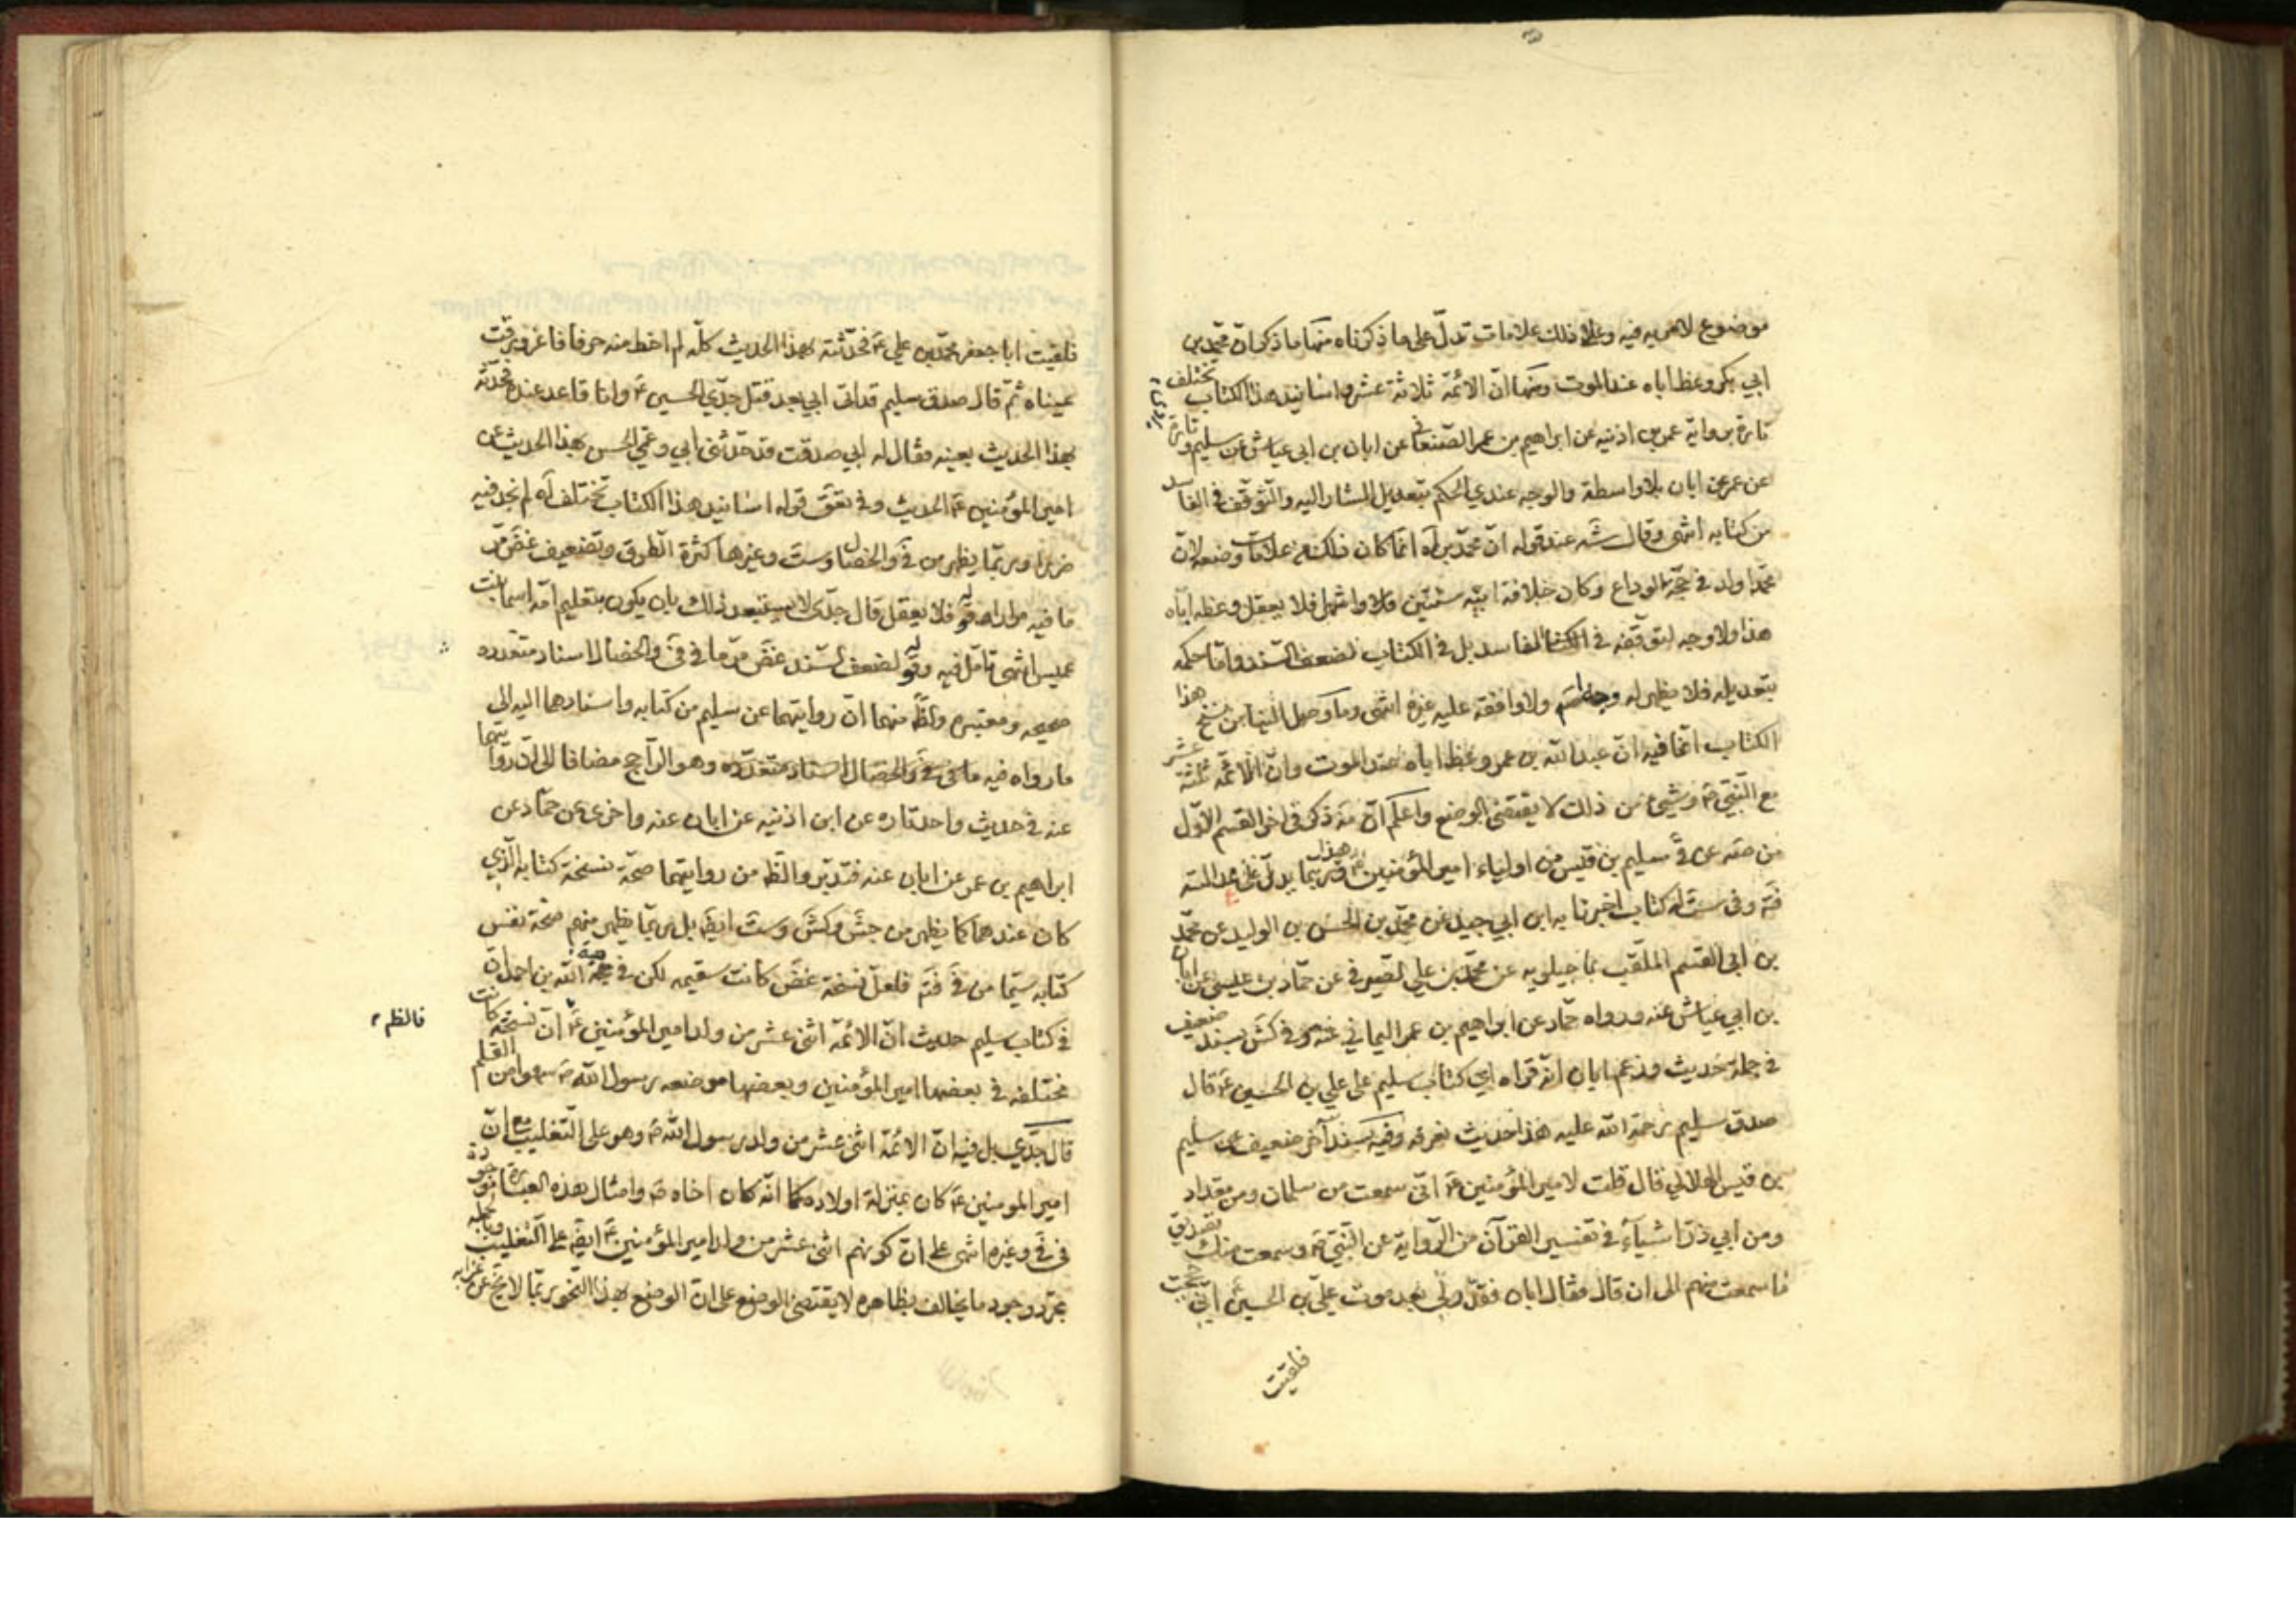 موضوع لا مريه فيه وعلى ذلك علامات تدلّ على ما ذكرناه منها ما ذكر انّ محمّد بن
ابي بكر وعظ اباه عند الموت ومنها انّ الائمّة ثلاثة عشر واسانيد هذا الكتاب تختلف
تارة برواية عمر بن اذنيه عن ابراهيم بن عمر الصنعاني عن ابان بن ابي عياش عن سليم وتارة
عن عمر عن ابان بلا واسطة والوجه عندي الحكم بتعديل المشار اليه والتوقف في الفاسد
من كتابه انتهى وقال شه عند قوله انّ محمّد بن آه انّما كان ذلك من علامات وضعه لانّ
محمّدا ولد في حجّة الوداع وكان خلافة ابيه سنتين واشهر فلا يعقل وعظه اباه
هذا ولا وجه لتوقفه في الكتاب الفاسد بل في الكتاب لضعف السند وامّا حكمه
بتعديله فلا يظهر له وجه ولا وافقه عليه غيره انتهى وما وصل الينا من نسخ هذا
الكتاب انّما فيه انّ عبد الله بن عمر وعظ اباه عند الموت وانّ الائمّة ثلثة عشر
مع النبيّ ص وشيئ من ذلك لا يقتضي الوضع واعلم انّ مه ذكر في اخر القسم الاوّل
من صه عن قي سليم بن قيس من اولياء امير المؤمنين ع وربّما يدلّ هذا على
وفي ست له كتاب اخبرنا به ابن ابي جيد عن محمّد بن الحسن بن الوليد عن محمّد
بن ابي القسم الملقّب بماجيلويه عن محمّد بن علي الصيرفي عن حمّاد بن عيسى عن ابان
بن ابي عياش عنه ورواه حمّاد عن ابراهيم بن عمر اليماني عنه وفي كش بسند ضعيف
في جملة حديث وزعم ابان انّه قراه اي كتاب سليم على علي بن الحسين ع قال
صدق سليم رحمة الله عليه هذا حديث نعرفه وفيه بسند آخر ضعيف عن سليم
بن قيس الهلالي قال قلت لامير المؤمنين ع انّي سمعت من سلمان ومن مقداد
ومن ابي ذرّ اشيآء في تفسير القرآن من الرّواية عن النبيّ ص وسمعت منك تصديق
ما سمعت منهم الى ان قال فقال ابان فقدّر لي بعد موت عليّ بن الحسين ع انّي حججت
فلقيت
فلقيت ابا جعفر محمّد بن علي ع فحدّثته بهذا الحديث كلّه لم اخط منه حرفا فاغرورقت
عيناه ثمّ قال صدق سليم قد اتى ابي بعد قتل جدّي الحسين ع وانا قاعد عنده فحدّثه
بهذا الحديث بعينه فقال له ابي صدقت قد حدّثني ابي وعمّي الحسن بهذا الحديث عن
امير المؤمنين ع الحديث وفي تعق قوله اسانيد هذا الكتاب تختلف آه لم نجد فيه
ضررا وربّما يظهر من في والخصال وست وغيرها كثرة الطرق وتضعيف غض مرّ
ما فيه مرارا وقوله فلا يعقل قال جدّي لا يستبعد ذلك بان يكون بتعليم امّه اسما بنت
عميس انتهى تامّل فيه وقوله لضعف السند غض مرّ ما في في والخصال اسناد متعدده
صحيحه ومعتبره والظ منهما انّ روايتهما عن سليم من كتابه واسنادهما اليه الى
ما رواه فيه ما في في والخصال اسناد متعدّده وهو الراجح مضافا الى انّ روايتهما
عنه في حديث واحد تاره عن ابن اذنيه عن ابان عنه واخرى عن حمّاد عن
ابراهيم بن عمر عن ابان عنه فتدبّر والظ من روايتهما صحّة نسخة كتابه الّذي
كان عندهما كما يظهر من جش وكش وست ايضا بل ربّما يظهر منهم صحّة نفس
كتابه سيّما من في فتم فلعلّ نسخة غض كانت سقيمه لكن في هبة الله بن احمد انّ
في كتاب سليم حديث انّ الائمّه اثنى عشر من ولد امير المؤمنين ع انّ نسخته كانت
فالظم
مختلفه في بعضها امير المؤمنين وبعضها موضعه رسول الله ص سهوا من القلم
قال جدّي بل فيه انّ الائمّه اثنى عشر من ولد رسول الله ص وهو على التّغليب مع انّ
امير المومنين ع كان بمنزلة اولاده كما انّه كان اخاه ص وامثال هذه العبارة موجودة
في في وغيره انتهى على انّ كونهم اثنى عشر من ولد امير المؤمنين ع ايضا على التّغليب وبالجمله
مجرّد وجود ما يخالف بظاهره لا يقتضي الوضع على انّ الوضع بهذا النّحو ربّما لا يخ عن غرابه